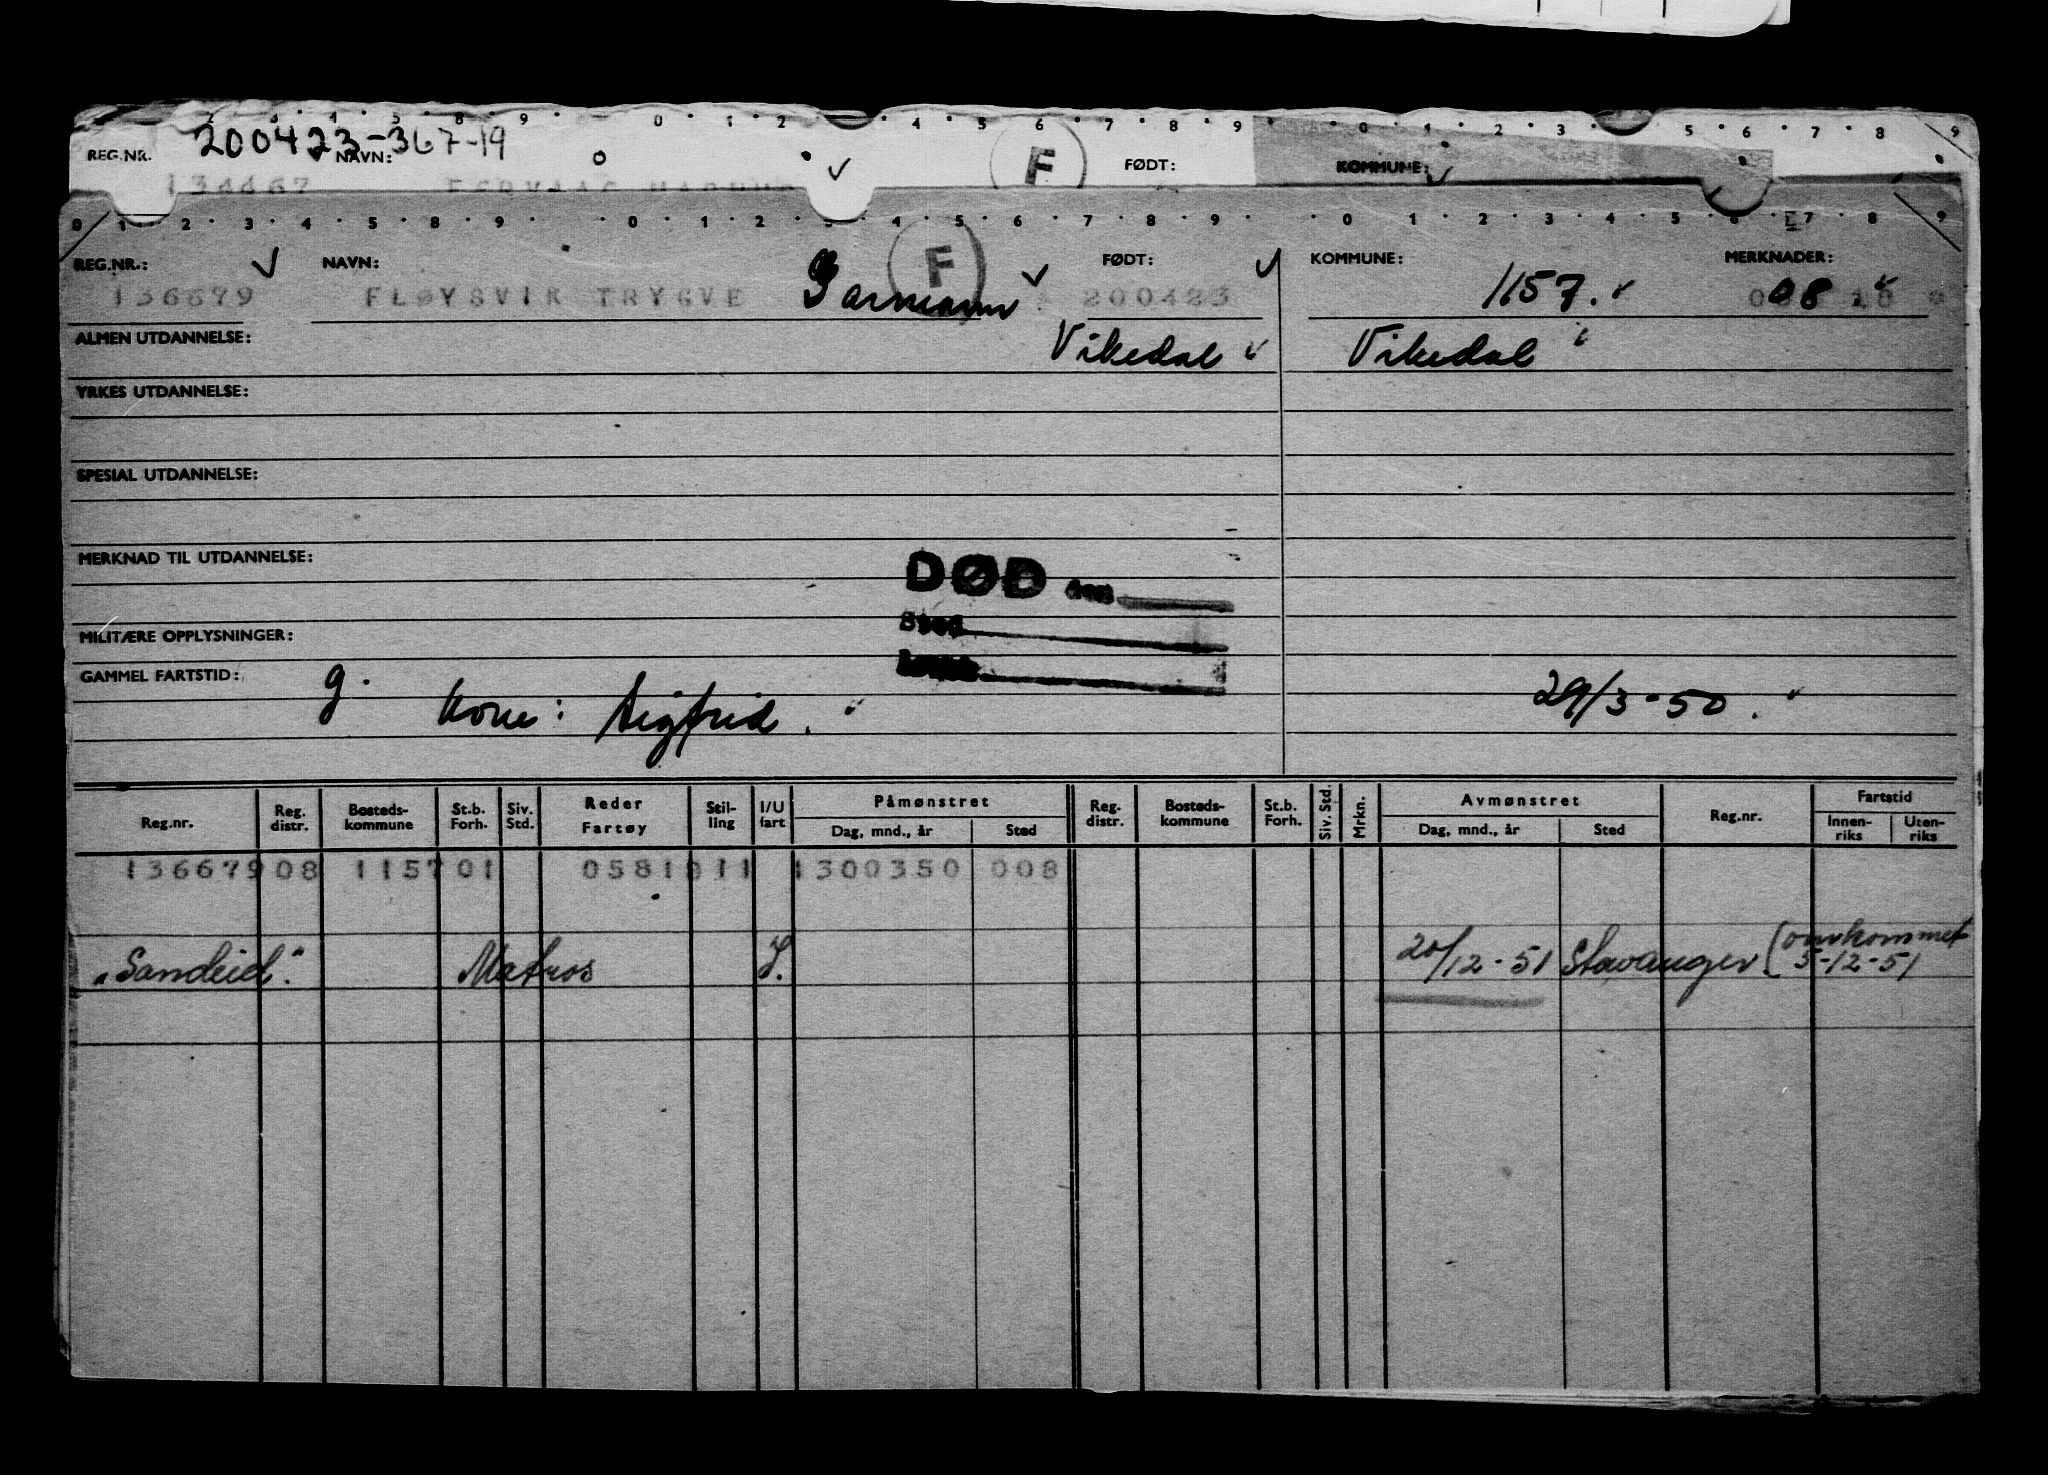 2 3 4 5 8 9 0 1 2 4 5 6 7 8 9 0 1 2 3 5 6 7 8 9
200423-367-19
REG.NR. NAVN: F FØDT: KOMMUNE:
134467
0 1 2 3 4 5 8 9 0 1 2 3 4 5 6 7 8 9 0 1 2 3 4 5 6 7 8 9
REG.NR.: NAVN: F FØDT: KOMMUNE: MERKNADER:
136679 FLØYSVIK TRYGVE Garmann 200423 1157. 08
ALMEN UTDANNELSE: Vikedal Vikedal
YRKES UTDANNELSE:
SPESIAL UTDANNELSE:
MERKNAD TIL UTDANNELSE: DØD den
Sted
MILITÆRE OPPLYSNINGER:
GAMMEL FARTSTID: g. kone: Sigfrid. 29/3-50.
Reg.nr. Reg. distr. Bosteds-kommune St.b. Forh. Siv. Std. Reder Fartøy Stil-ling I/U fart Påmønstret Reg. distr. Bosteds-kommune St.b. Forh. Siv. Std. Mrkn. Avmønstret Reg.nr. Fartstid
Dag, mnd., år Sted Dag, mnd., år Sted Innen-riks Uten-riks
136679 08 1157 01 0581011 1300350 008
"Sandeid". Matros I. 20/12-51 Stavanger (omkommet
5-12-51